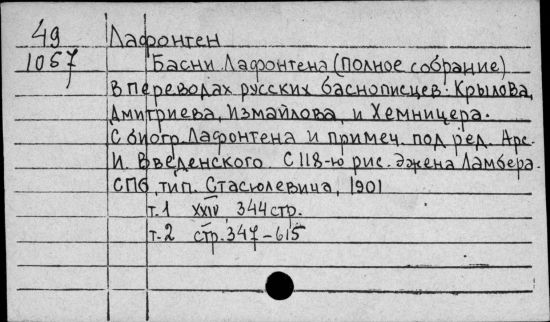 49
1067
Лафонтен
Басни Лафонтена (полное собрание)
в переводах русских баснописцев: Крылова,
Дмитриева, Измайлова, и Хемницера.
С биогр. Лафонтена и примеч. под ред. Арс.
И. Введенского С 118-ю рис. Джена Ламбера.
СПб, тип. Стасюлевича, 1901
т.1 XXIV, 344 стр.
т.2 стр. 347-615